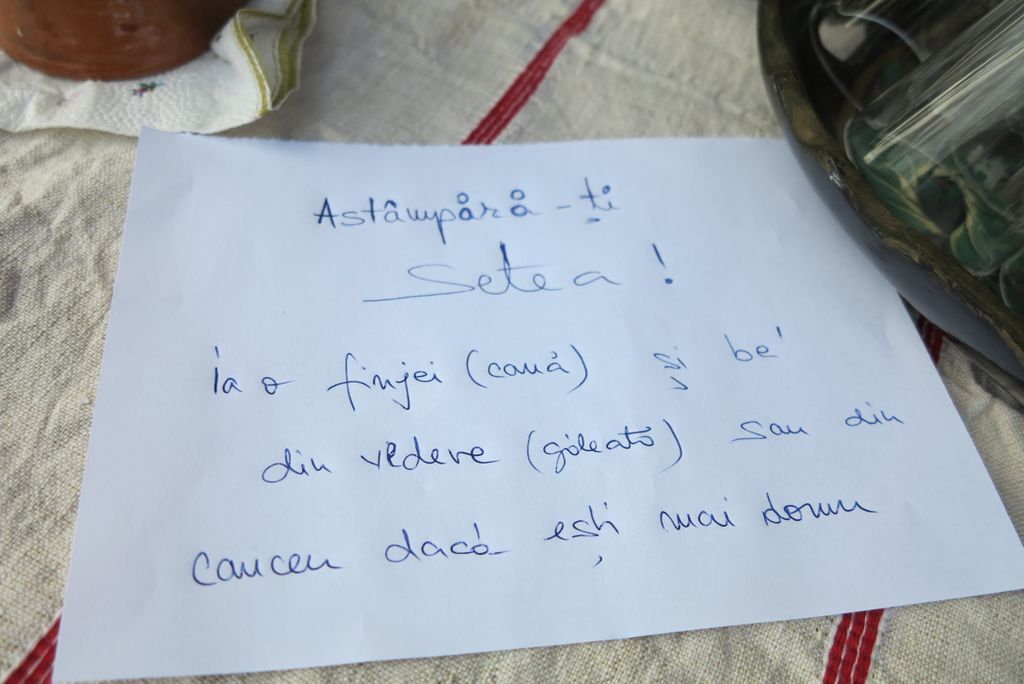 Astâmpără-ți
Setea!
Ia o finjei (cană) și be'
din vedere (găleată) sau din
cauceu dacă ești mai domn